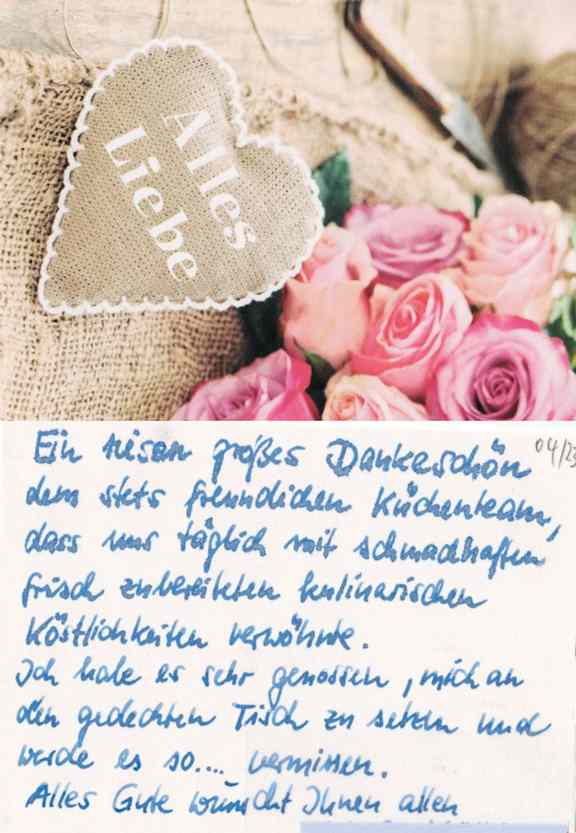 Alles
Liebe
04/23
Ein riesen großes Dankeschön
dem stets freundlichen Küchenteam,
dass uns täglich mit schmackhaften
frisch zubereiteten kulinarischen
Köstlichkeiten verwöhnte.
Ich habe es sehr genossen, mich an
den gedeckten Tisch zu setzen und
werde es so.... vermissen.
Alles Gute wünscht Ihnen allen